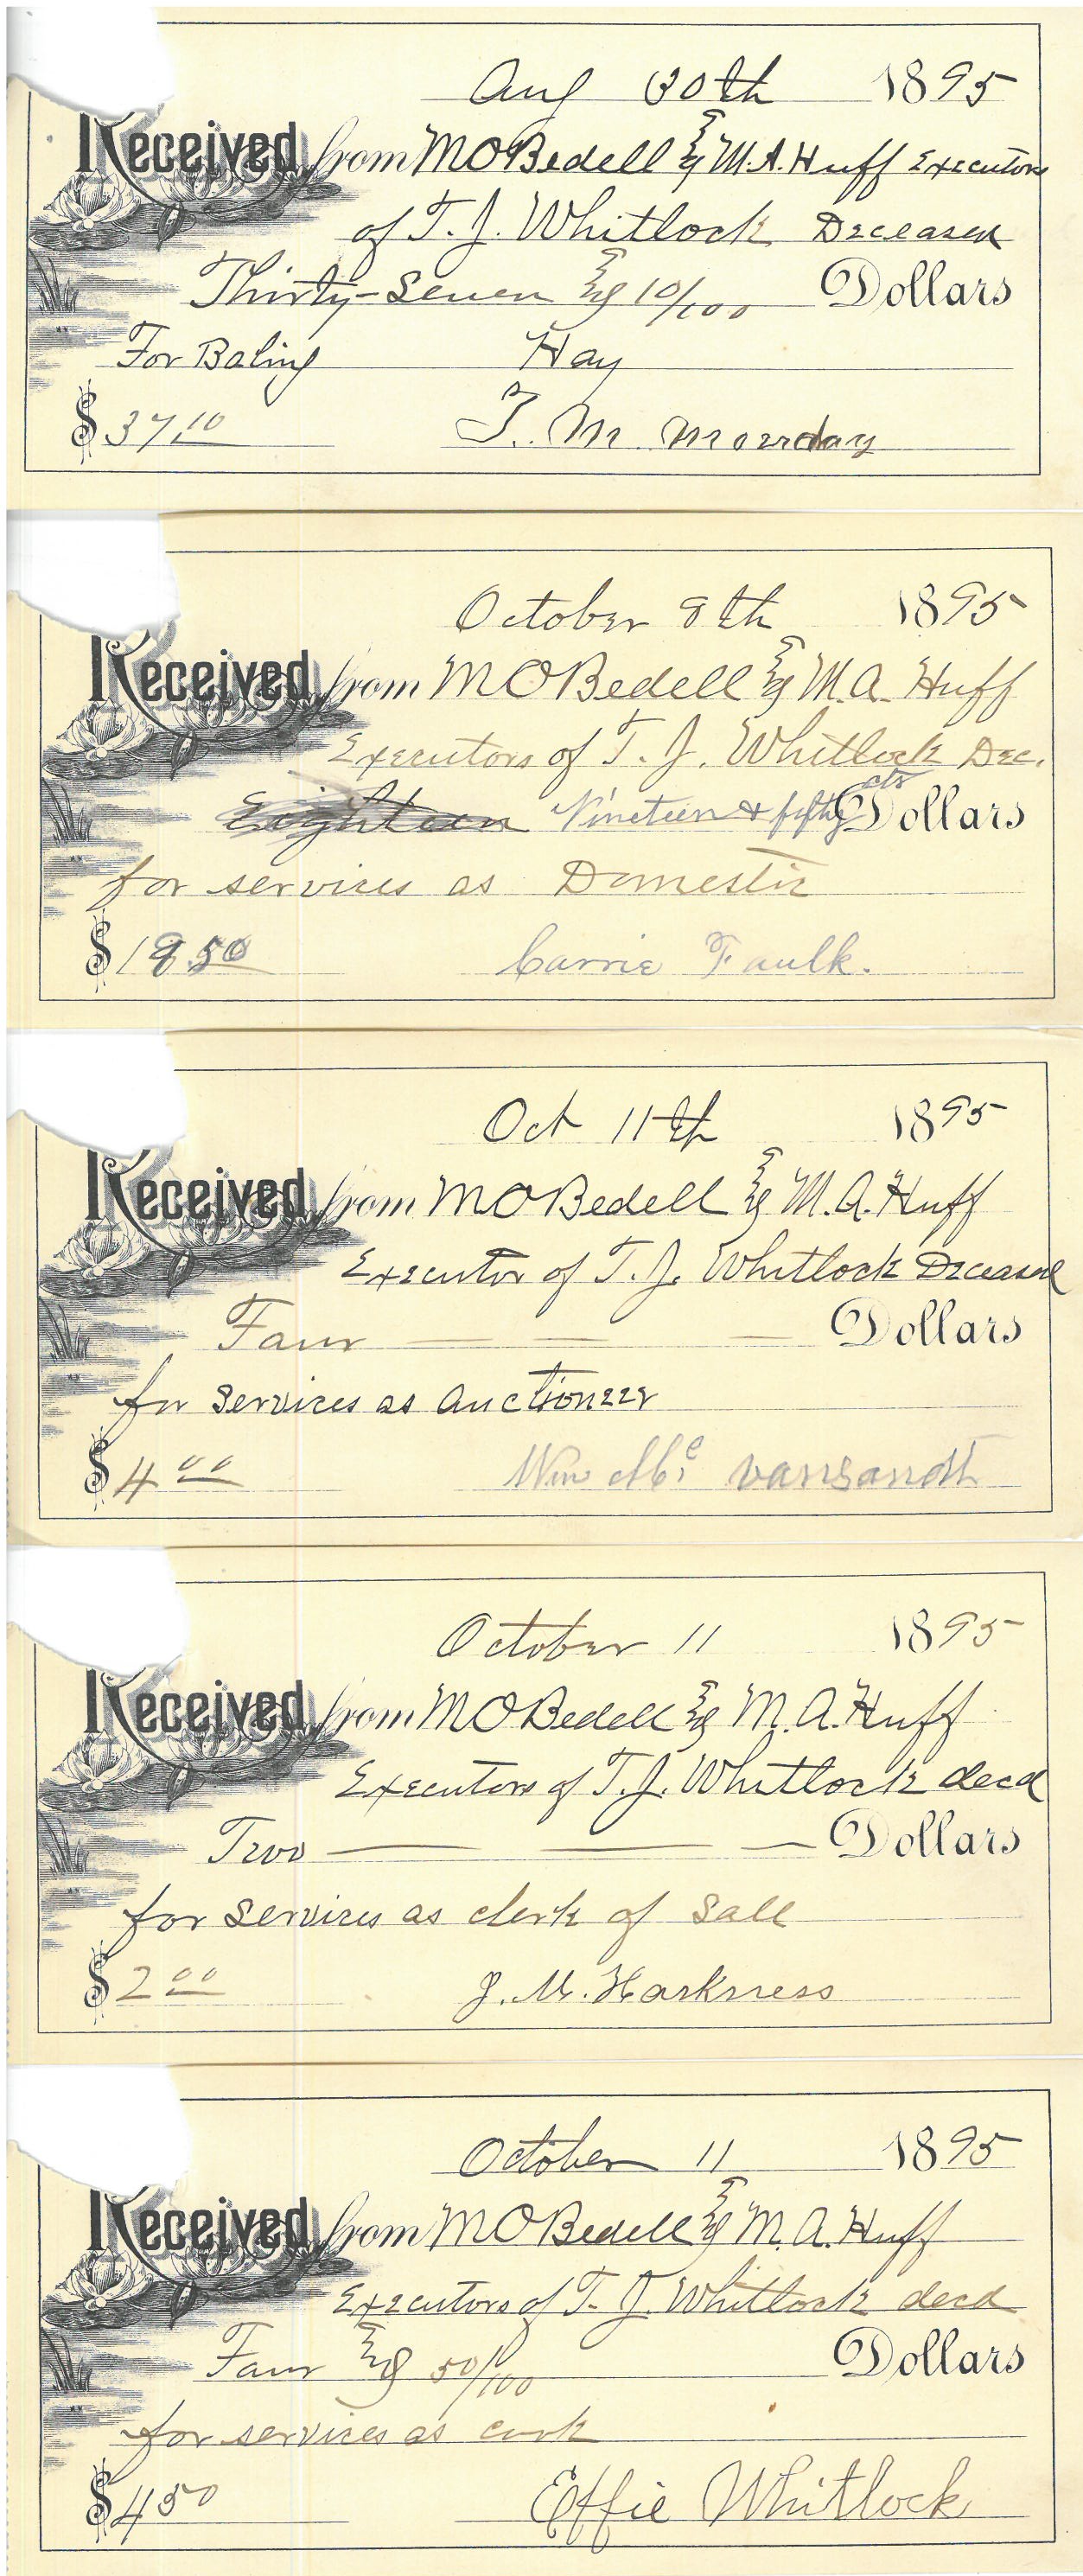 Aug 30th 1895
Received from M O Bedell & M. A. Huff Executors
of T. J. Whitlock Deceased
Thirty-Seven & 10/100 Dollars
For Baling Hay
$37.10 T. M.
October 8th 1895
Received from M O Bedell & M. A. Huff
Executors of T. J. Whitlock Dec.
Eighteen Nineteen & fifty cts Dollars
for services as Domestic
$19.50 Carrie Faulk.
Oct 11th 1895
Received from M O Bedell & M. A. Huff
Executor of T. J. Whitlock Deceased
Four Dollars
for Services as Auctioneer
$4.00 Wm Mc vansandt
October 11 1895
Received from M O Bedell & M. A. Huff
Executors of T. J. Whitlock decd
Two Dollars
for Services as clerk of Sale
$2.00 J. M. Harkness
October 11 1895
Received from M O Bedell & M. A. Huff
Executors of T. J. Whitlock decd
Four & 50/100 Dollars
for services as cook
$4.50 Effie Whitlock